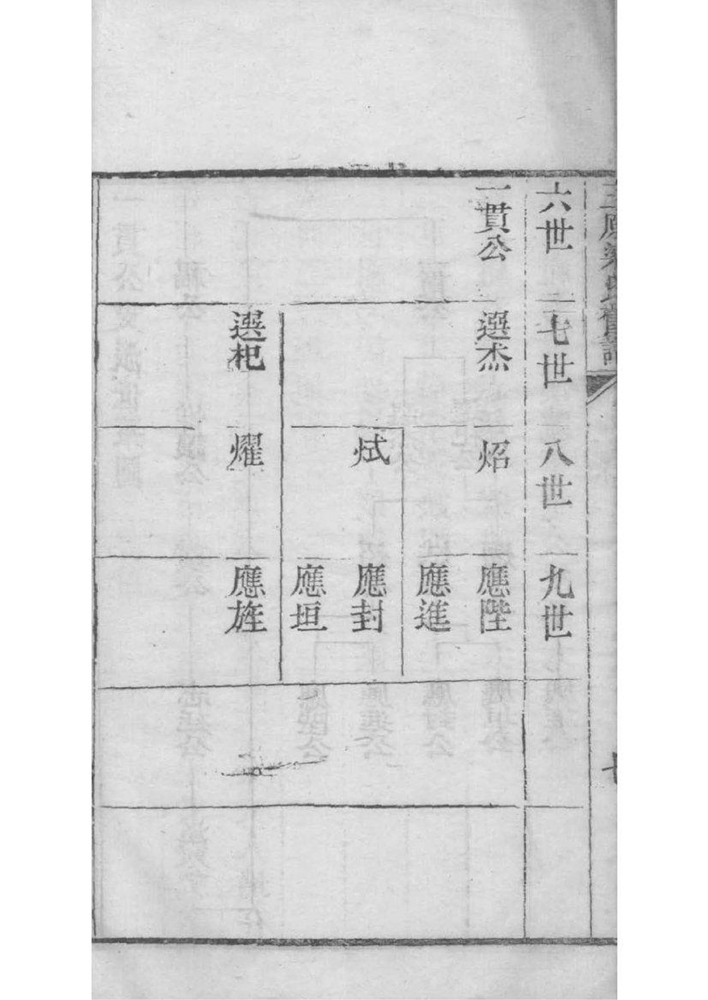 六世 七世 八世 九世
一貫公 選杰 炤 應陛
應進
烒 應封
應垣
選杞 燿 應旌